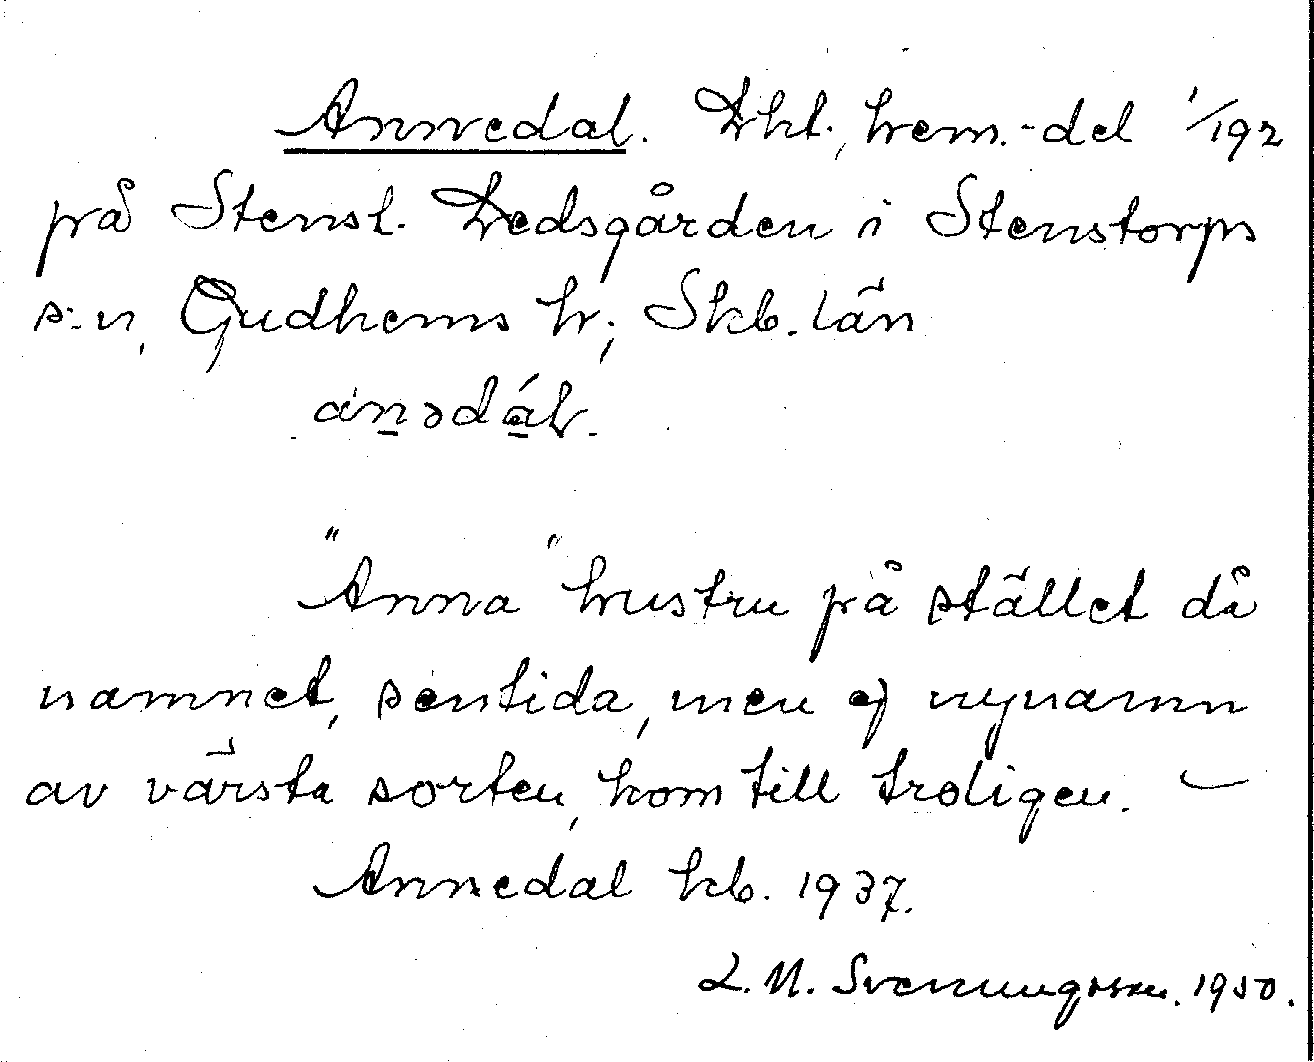 Annedal. Lht., hem.-del 1/192
på Stensl. Dedsgården i Stenstorps
s:n, Gudhems hr; Skb. län
anədáḷ.
"Anna" hustru på stället då
namnet, sentida, men ej nynamn
av värsta sorten, kom till troligen. –
Annedal kb. 1937.
L. M. Svenungsson. 1950.